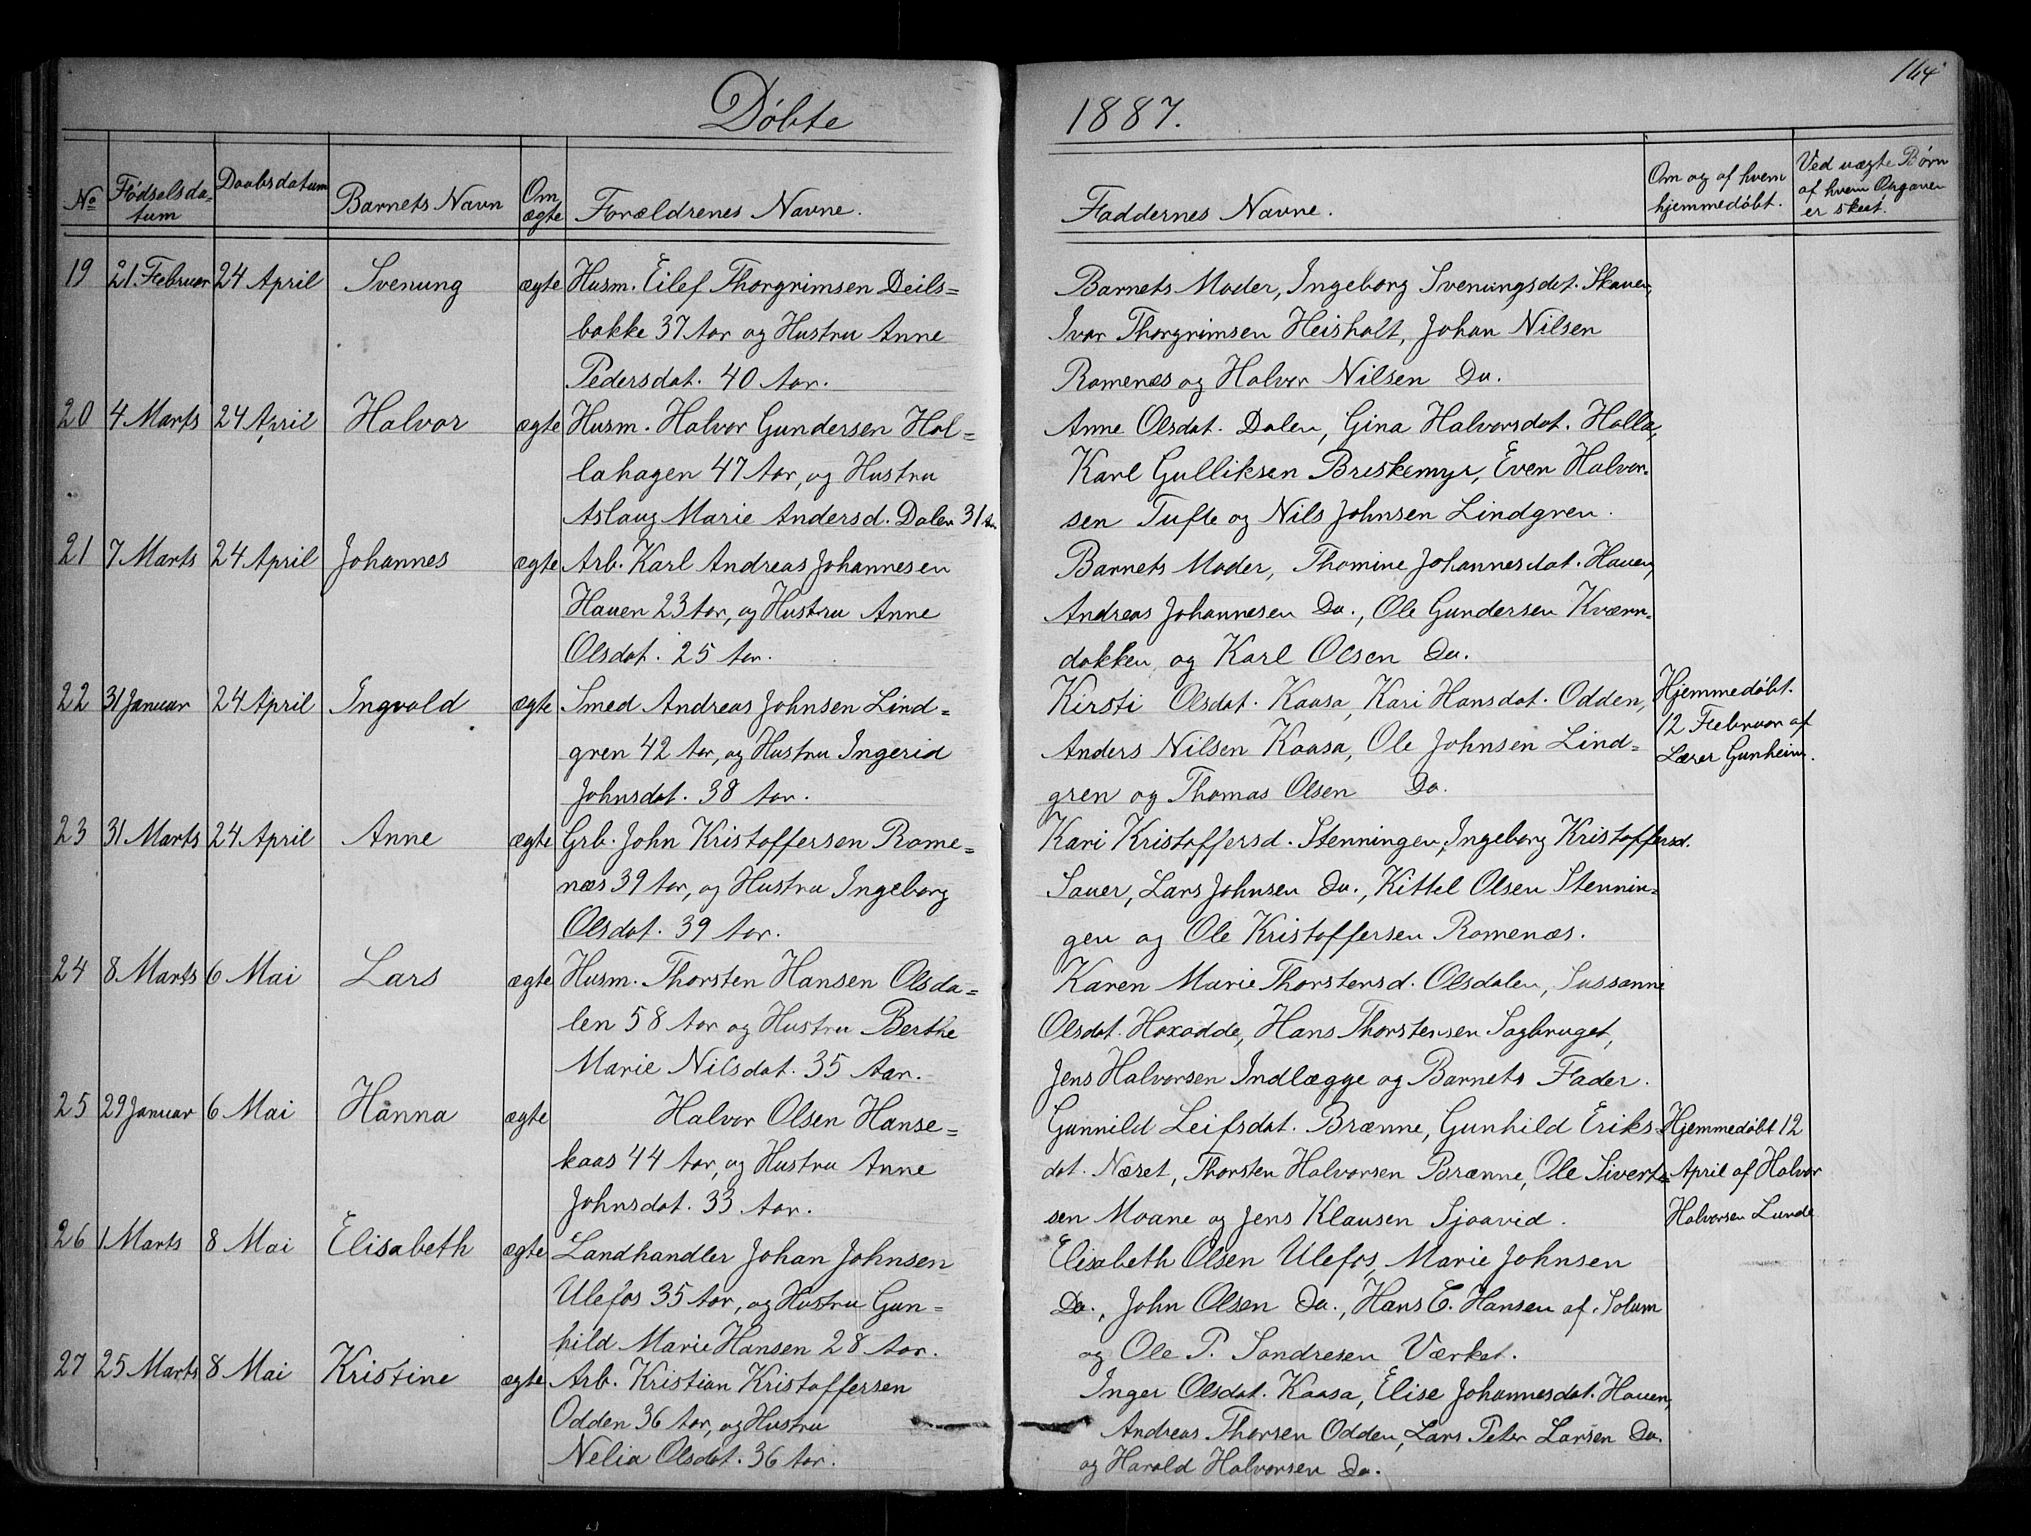 164
Døbte 1887.
No Fødselsdatum Daabsdatum Barnets Navn Om ægte Forældrenes Navne. Faddernes Navne. Om og af hvem hjemmedøbt. Ved uægte Børn af hvem Opgaven er skeet.
19 21 Februar 24 April Svenung ægte Husm. Eilef Thorgrimsen Deils= Barnets Moder, Ingeborg Svenungsdat. Skauen,
bakke 37 Aar og Hustru Anne Ivar Thorgrimsen Heisholt, Johan Nilsen
Pedersdat. 40 Aar. Romenæs og Halvor Nilsen Do.
20 4 Marts 24 April Halvor ægte Husm. Halvor Gundersen Hol= Anne Olsdat. Dalen, Gina Halvorsdat. Holla,
lahagen 47 Aar, og Hustru Karl Gulliksen Briskemyr, Even Halvor=
Aslaug Marie Andersd. Dalen 31 Aar sen Tufte og Nils Johnsen Lindgren.
21 7 Marts 24 April Johannes ægte Arb. Karl Andreas Johannesen Barnets Moder, Thomine Johannesdat. Hauen,
Hauen 23 Aar, og Hustru Anne Andreas Johannesen Do., Ole Gundersen Kværn=
Olsdat. 25 Aar. dokken og Karl Olsen Do.
22 31 Januar 24 April Ingvald ægte Smed Andreas Johnsen Lind= Kirsti Olsdat. Kaasa, Kari Hansdat. Odden, Hjemmedøbt.
gren 42 Aar, og Hustru Ingerid Anders Nilsen Kaasa, Ole Johnsen Lind= 12 Februar af
Johnsdat. 38 Aar. gren og Thomas Olsen Do. Lærer Gunheim.
23 31 Marts 24 April Anne ægte Grb. John Kristoffersen Rome= Kari Kristoffersd. Stenningen, Ingeborg Kristoffersd.
næs 39 Aar, og Hustru Ingeborg Sauer, Lars Johnsen Do., Kittel Olsen Stennin=
Olsdat. 39 Aar. gen og Ole Kristoffersen Romenæs.
24 8 Marts 6 Mai Lars ægte Husm. Thorsten Hansen Olsda= Karen Marie Thorstensd. Olsdalen, Sussanne
len 58 Aar og Hustru Berthe Olsdat. Hoxodde, Hans Thorstensen Sagbruget,
Marie Nilsdat. 35 Aar. Jens Halvorsen Indlægge og Barnets Fader.
25 29 Januar 6 Mai Hanna ægte Halvor Olsen Hanse= Gunnild Leifsdat. Brænne, Gunhild Eriks= Hjemmedøbt 12
kaas 44 Aar, og Hustru Anne dat. Næset, Thorsten Halvorsen Brænne, Ole Siverts= April af Halvor
Johnsdat. 33 Aar. sen Moane og Jens Klausen Sjoavid. Halvorsen Lunde
26 1 Marts 8 Mai Elisabeth ægte Landhandler Johan Johnsen Elisabeth Olsen Ulefos, Marie Johnsen
Ulefos 35 Aar, og Hustru Gun= Do., John Olsen Do., Hans E. Hansen af Solum
hild Marie Hansen 28 Aar. og Ole P. Sondresen Værket.
27 25 Marts 8 Mai Kristine ægte Arb. Kristian Kristoffersen Inger Olsdat. Kaasa, Elise Johannesdat. Hauen,
Odden 36 Aar, og Hustru Andreas Thorsen Odden, Lars Peter Larsen Do.
Nelia Olsdat. 36 Aar. og Harald Halvorsen Do.